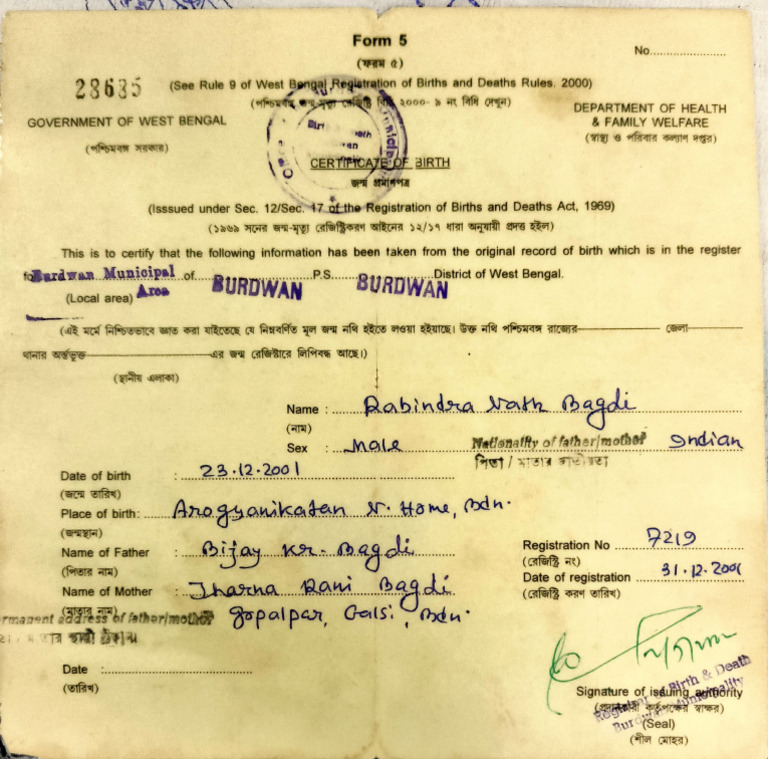 Form 5
(ফরম ৫)
No....................
28635
(See Rule 9 of West Bengal Registration of Births and Deaths Rules. 2000)
(পশ্চিমবঙ্গ জন্ম-মৃত্যু রেজিষ্ট্রি বিধি ২০০০- ৯ নং বিধি দেখুন)
GOVERNMENT OF WEST BENGAL
(পশ্চিমবঙ্গ সরকার)
DEPARTMENT OF HEALTH
& FAMILY WELFARE
(স্বাস্থ্য ও পরিবার কল্যাণ দপ্তর)
CERTIFICATE OF BIRTH
জন্ম প্রমাণপত্র
(Isssued under Sec. 12/Sec. 17 of the Registration of Births and Deaths Act, 1969)
(১৯৬৯ সনের জন্ম-মৃত্যু রেজিষ্ট্রিকরণ আইনের ১২/১৭ ধারা অনুযায়ী প্রদত্ত হইল)
This is to certify that the following information has been taken from the original record of birth which is in the register
for Burdwan Municipal Area of BURDWAN P.S. BURDWAN District of West Bengal.
(Local area)
(এই মর্মে নিশ্চিতভাবে জ্ঞাত করা যাইতেছে যে নিম্নবর্ণিত মূল জন্ম নথি হইতে লওয়া হইয়াছে। উক্ত নথি পশ্চিমবঙ্গ রাজ্যের জেলা
থানার অর্ন্তভুক্ত এর জন্ম রেজিষ্টারে লিপিবদ্ধ আছে।)
(স্থানীয় এলাকা)
Name : Rabindra Nath Bagdi
(নাম)
Sex : Male Nationality of father/mother Indian
পিতা / মাতার জাতীয়তা
Date of birth : 23.12.2001
(জন্মে তারিখ)
Place of birth: Arogyaniketan N. Home, Bdn.
(জন্মস্থান)
Name of Father : Bijay Kr. Bagdi
(পিতার নাম)
Registration No 7219
(রেজিষ্ট্রি নং)
Name of Mother : Jharna Rani Bagdi
(মাতার নাম)
Date of registration 31.12.2001
(রেজিষ্ট্রি করণ তারিখ)
rmanent address of father/mother Gopalpar, Galsi, Bdn.
Date :
(তারিখ)
Signature of issuing authority
(প্রদানকারী কর্তৃপক্ষের স্বাক্ষর)
Registrar of Birth & Death
Burdwan Municipality
(Seal)
(শীল মোহর)